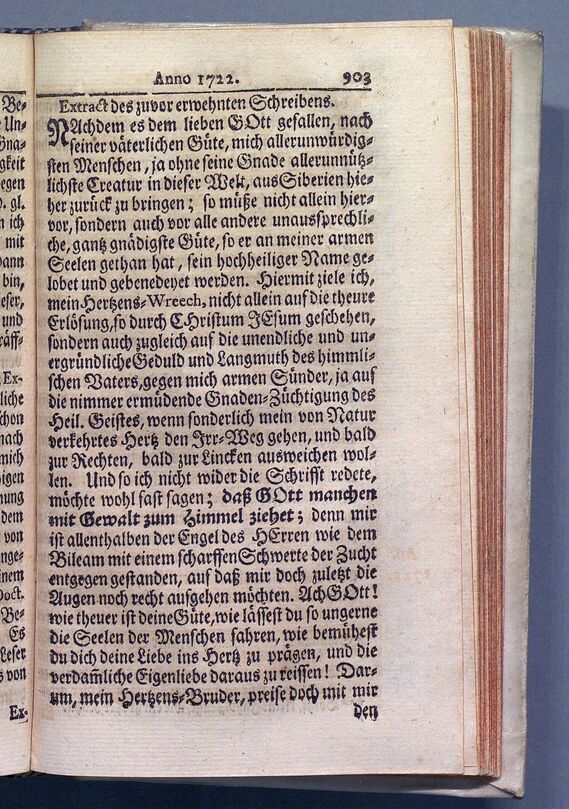 Be-
Un-
Gna-
gkeit
egen
. gl.
n ich
mit
dann
bin,
eser,
und
räff-
Ex-
liche
schon
nach
mich
igen
nung
dem
von
nge-
inem
Doct.
Be-
Es
Leser
s von
Ex-
Anno 1722. 903
Extract des zuvor erwehnten Schreibens.
NAchdem es dem lieben GOtt gefallen, nach
seiner väterlichen Güte, mich allerunwürdig-
sten Menschen, ja ohne seine Gnade allerunnütz-
lichste Creatur in dieser Welt, aus Siberien hie-
her zurück zu bringen; so müße nicht allein hier-
vor, sondern auch vor alle andere unaussprechli-
che, gantz gnädigste Güte, so er an meiner armen
Seelen gethan hat, sein hochheiliger Name ge-
lobet und gebenedeyet werden. Hiermit ziele ich,
mein Hertzens-Wreech, nicht allein auf die theure
Erlösung, so durch CHristum JEsum geschehen,
sondern auch zugleich auf die unendliche und un-
ergründliche Geduld und Langmuth des himmli-
schen Vaters, gegen mich armen Sünder, ja auf
die nimmer ermüdende Gnaden-Züchtigung des
Heil. Geistes, wenn sonderlich mein von Natur
verkehrtes Hertz den Irr-Weg gehen, und bald
zur Rechten, bald zur Lincken ausweichen wol-
len. Und so ich nicht wider die Schrifft redete,
möchte wohl fast sagen; daß GOtt manchen
mit Gewalt zum Himmel ziehet; denn mir
ist allenthalben der Engel des HErren wie dem
Bileam mit einem scharffen Schwerte der Zucht
entgegen gestanden, auf daß mir doch zuletzt die
Augen noch recht aufgehen möchten. Ach GOtt!
wie theuer ist deine Güte, wie lässest du so ungerne
die Seelen der Menschen fahren, wie bemühest
du dich deine Liebe ins Hertz zu prägen, und die
verdam̄liche Eigenliebe daraus zu reissen! Dar-
um, mein Hertzens-Bruder, preise doch mit mir
den